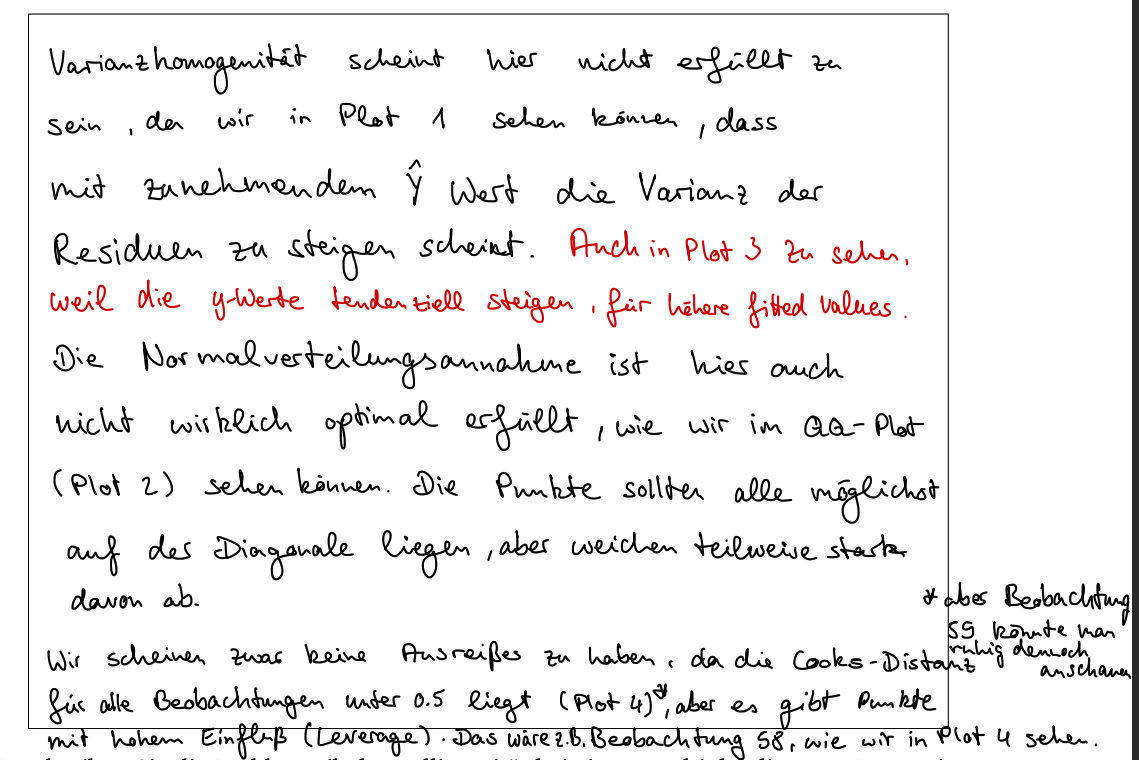 Varianzhomogenität scheint hier nicht erfüllt zu
sein, da wir in Plot 1 sehen können, dass
mit zunehmendem Ŷ Wert die Varianz der
Residuen zu steigen scheint. Auch in Plot 3 zu sehen,
weil die y-Werte tendenziell steigen, für höhere fitted values.
Die Normalverteilungsannahme ist hier auch
nicht wirklich optimal erfüllt, wie wir im QQ-Plot
(Plot 2) sehen können. Die Punkte sollten alle möglichst
auf der Diagonale liegen, aber weichen teilweise stark
davon ab.
Wir scheinen zwar keine Ausreißer zu haben, da die Cooks-Distanz
für alle Beobachtungen unter 0.5 liegt (Plot 4)*, aber es gibt Punkte
mit hohem Einfluß (Leverage). Das wäre z.B. Beobachtung 58, wie wir in Plot 4 sehen.
* aber Beobachtung
59 könnte man
ruhig dennoch
anschauen